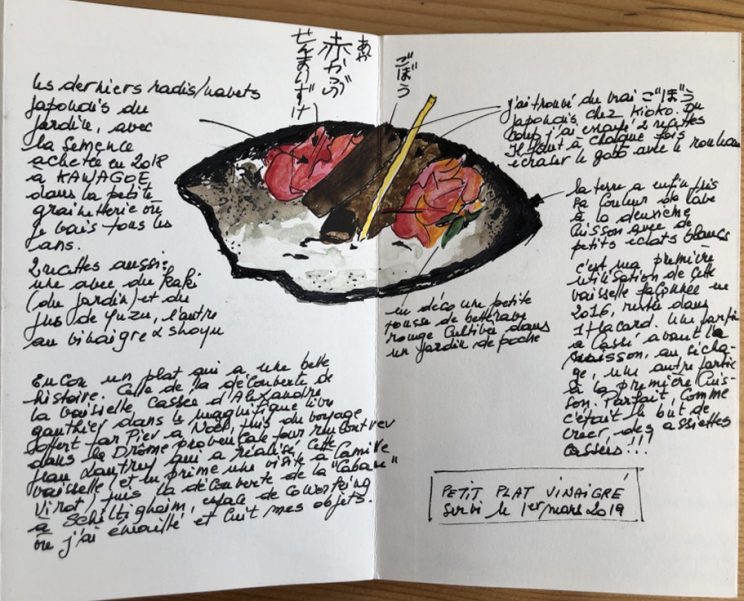 あか
赤かぶの
せんまいづけ
ごぼう
Les derniers radis/navets
japonais du
jardin, avec
la semence
achetée en 2018
à KAWAGOE
dans la petite
graineterie où
je vais tous les
ans.
2 recettes aussi:
une avec du Kaki
(du jardin) et du
jus de yuzu, l'autre
au vinaigre & shoyu
Encore un plat qui a une belle
histoire. Celle de la découverte de
la vaisselle cassée d'Alexandre
Gauthier dans le magnifique livre
offert par Pier à Noël, puis du voyage
dans la Drôme provençale pour rencontrer
qui a réalisé cette
vaisselle (et en prime une visite à Camille
Virot), puis la découverte de la "Cabane"
à Schiltigheim, espace de coworking
où j'ai émaillé et cuit mes objets.
j'ai trouvé du vrai ごぼう
japonais chez Kioko. Du
coup j'ai essayé 2 recettes
Il faut à chaque fois
écraser le gobo avec le rouleau
la terre a enfin pris
sa couleur de lave
à la deuxième
cuisson avec de
petits éclats blancs
c'est ma première
utilisation de cette
vaisselle façonnée en
2016, restée dans
1 placard. Une partie
a cassé avant la
cuisson, au sécha-
ge, une autre partie
à la première cuis-
son. Parfait, comme
c'était le but de
créer des assiettes
cassées!!!
en déco une petite
pousse de betterave
rouge cultivée dans
un jardin de poche
PETIT PLAT VINAIGRÉ
servi le 1er mars 2019